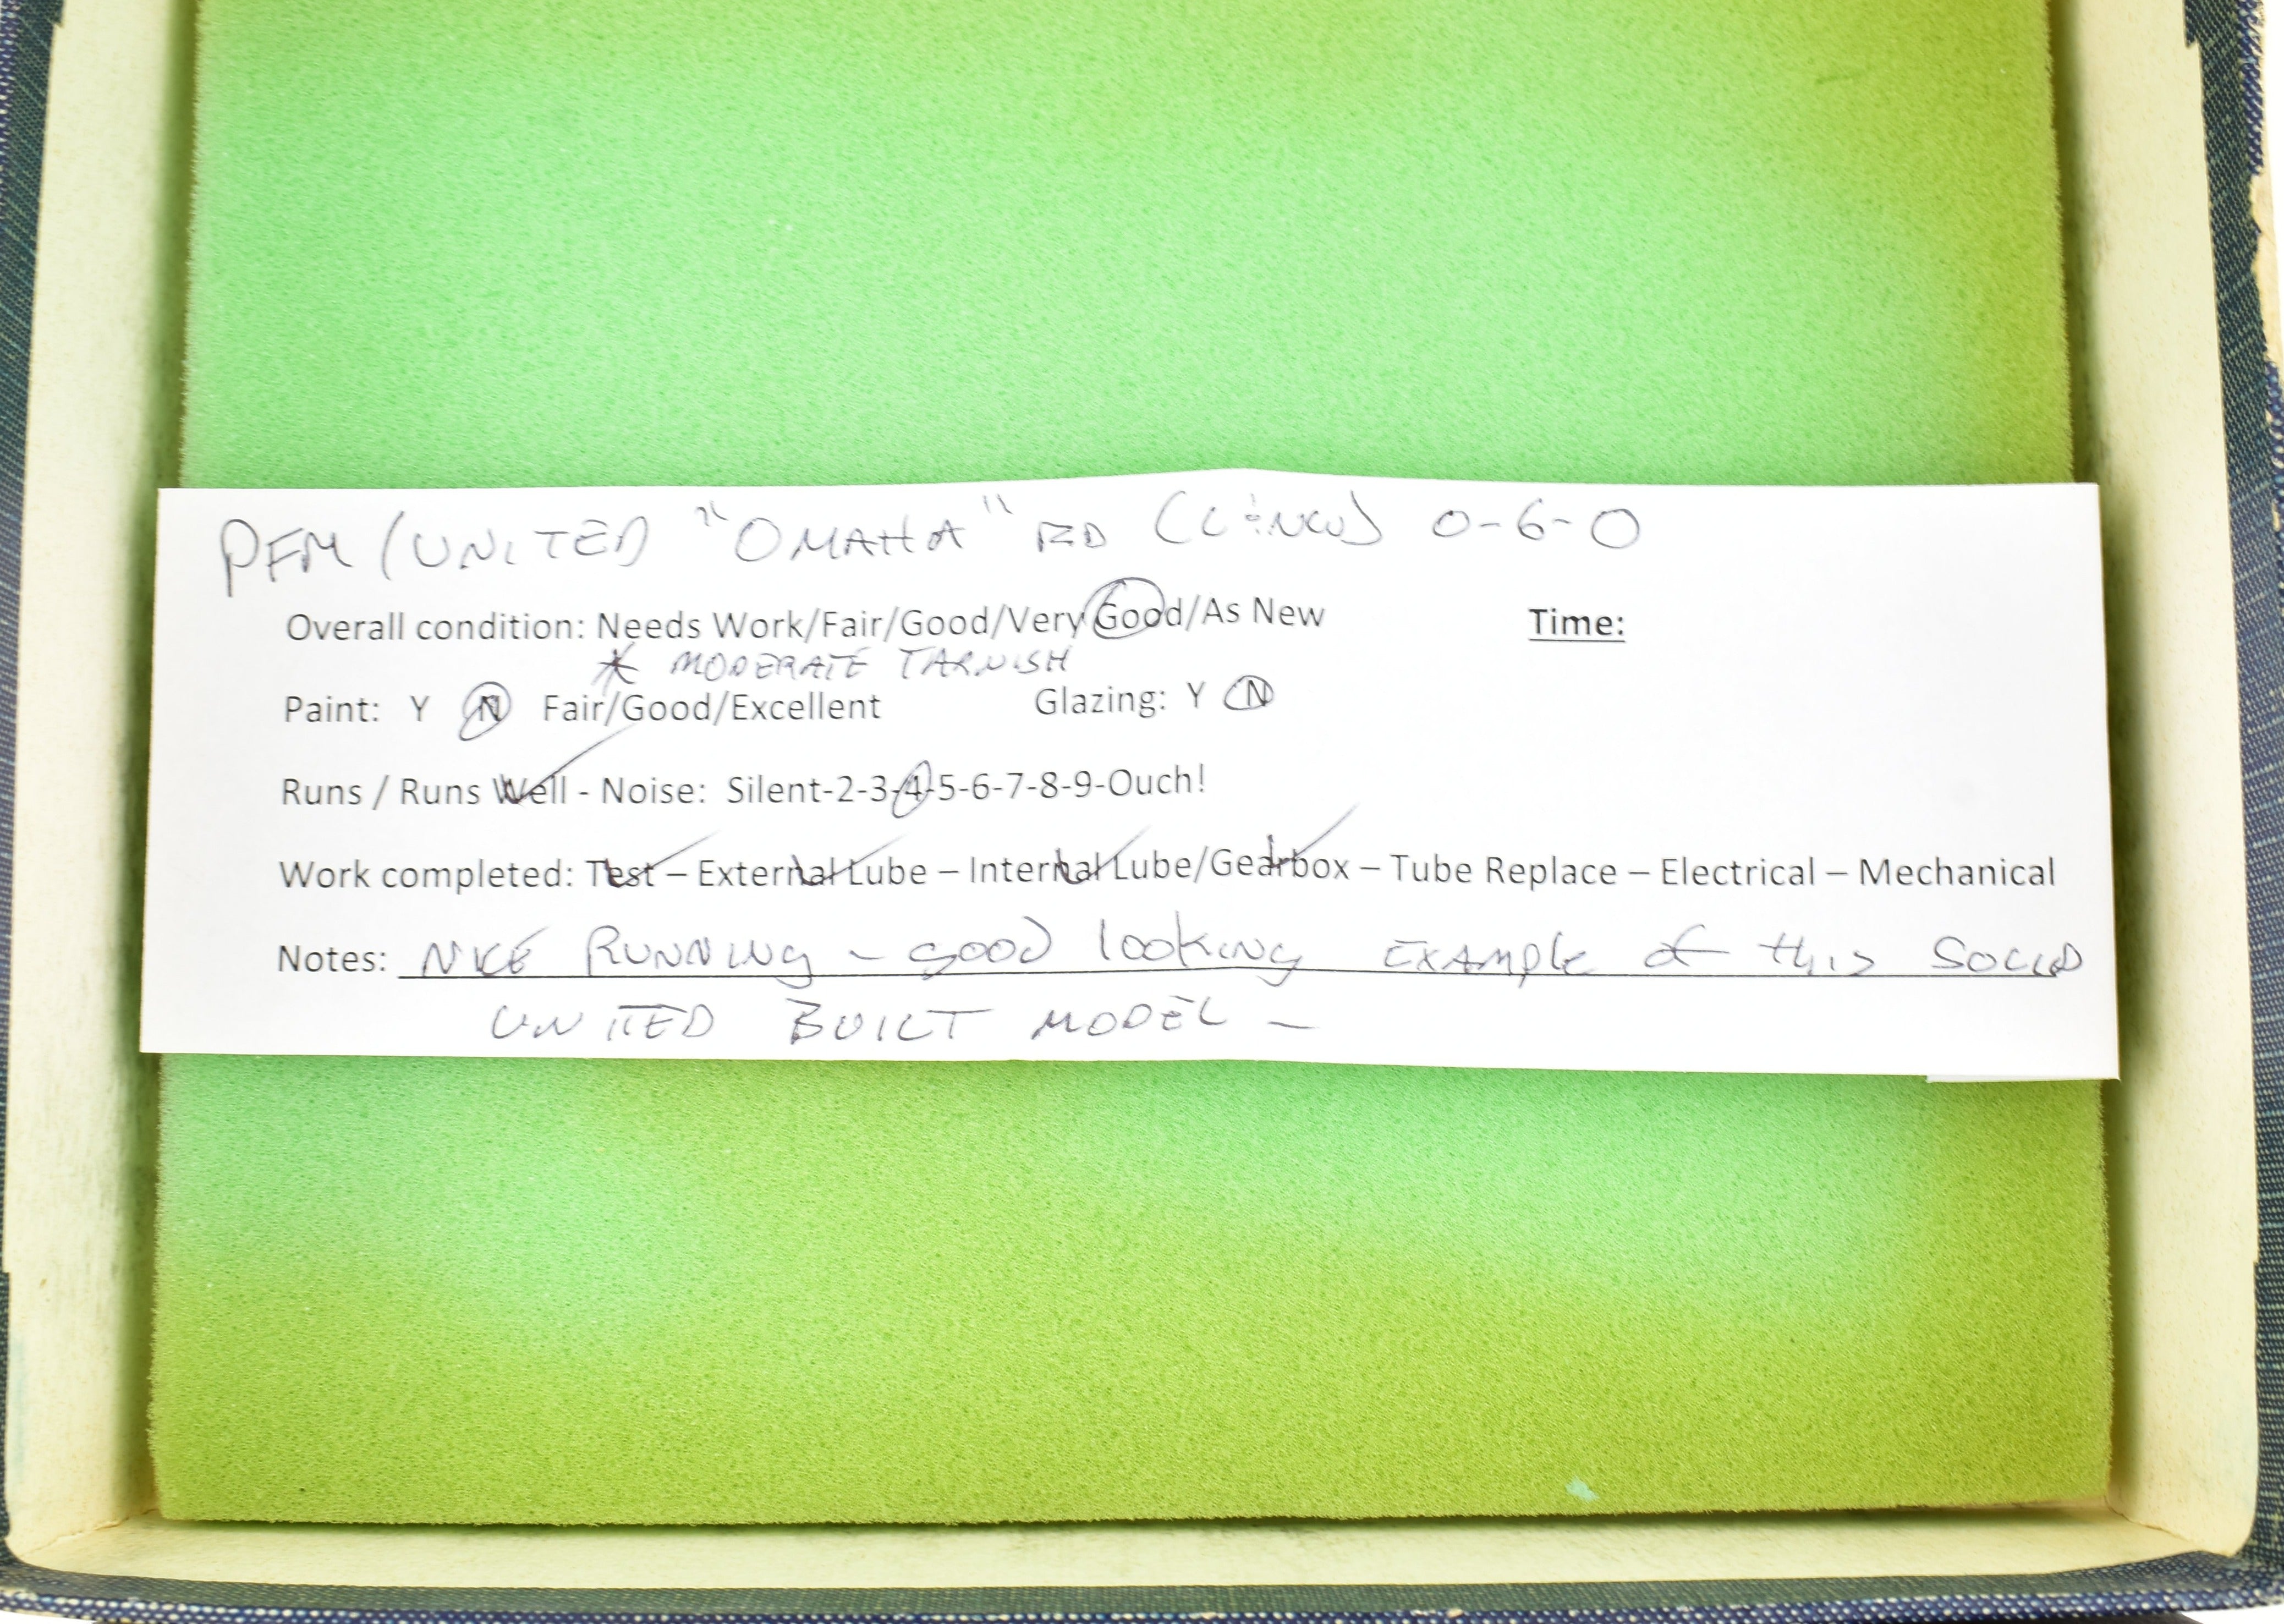 PFM/UNITED "OMAHA" RD 0-6-0
Overall condition: Needs Work/Fair/Good/Very Good/As New Time:
* MODERATE TARNISH
Paint: Y N Fair/Good/Excellent Glazing: Y N
Runs / Runs Well - Noise: Silent-2-3-4-5-6-7-8-9-Ouch!
Work completed: Test – External Lube – Internal Lube/Gearbox – Tube Replace – Electrical – Mechanical
Notes: NICE RUNNING - GOOD looking EXAMPLE of this SOLID
UNITED BUILT MODEL -